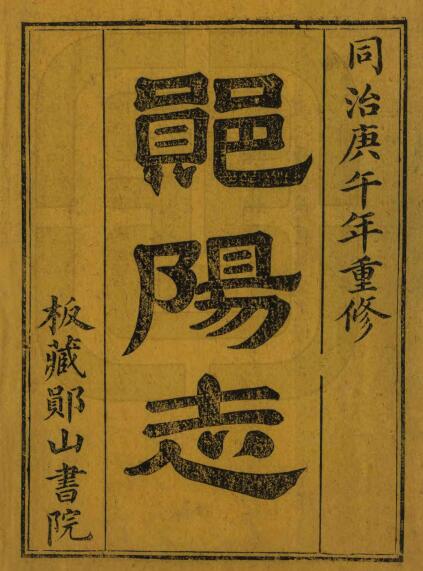 同治庚午年重修
鄖陽志
板藏鄖山書院